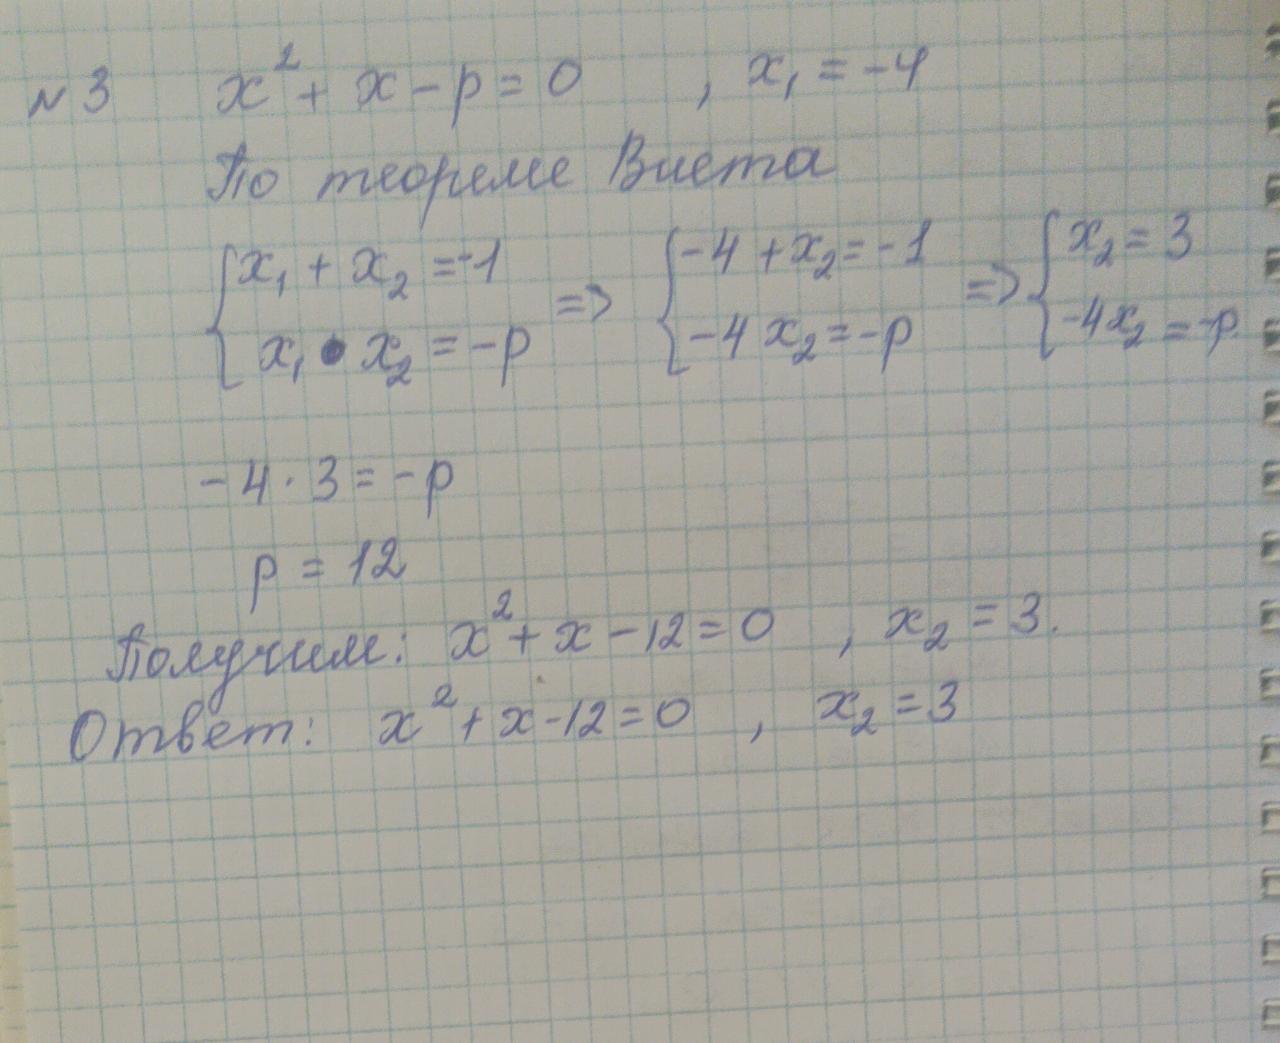 №3 x² + x - p = 0 , x₁ = -4
По теореме Виета
{x₁ + x₂ = -1 => {-4 + x₂ = -1 => {x₂ = 3
x₁ • x₂ = -p -4 x₂ = -p -4x₂ = -p.
-4 · 3 = -p
p = 12
Получим: x² + x - 12 = 0 , x₂ = 3.
Ответ: x² + x - 12 = 0 , x₂ = 3